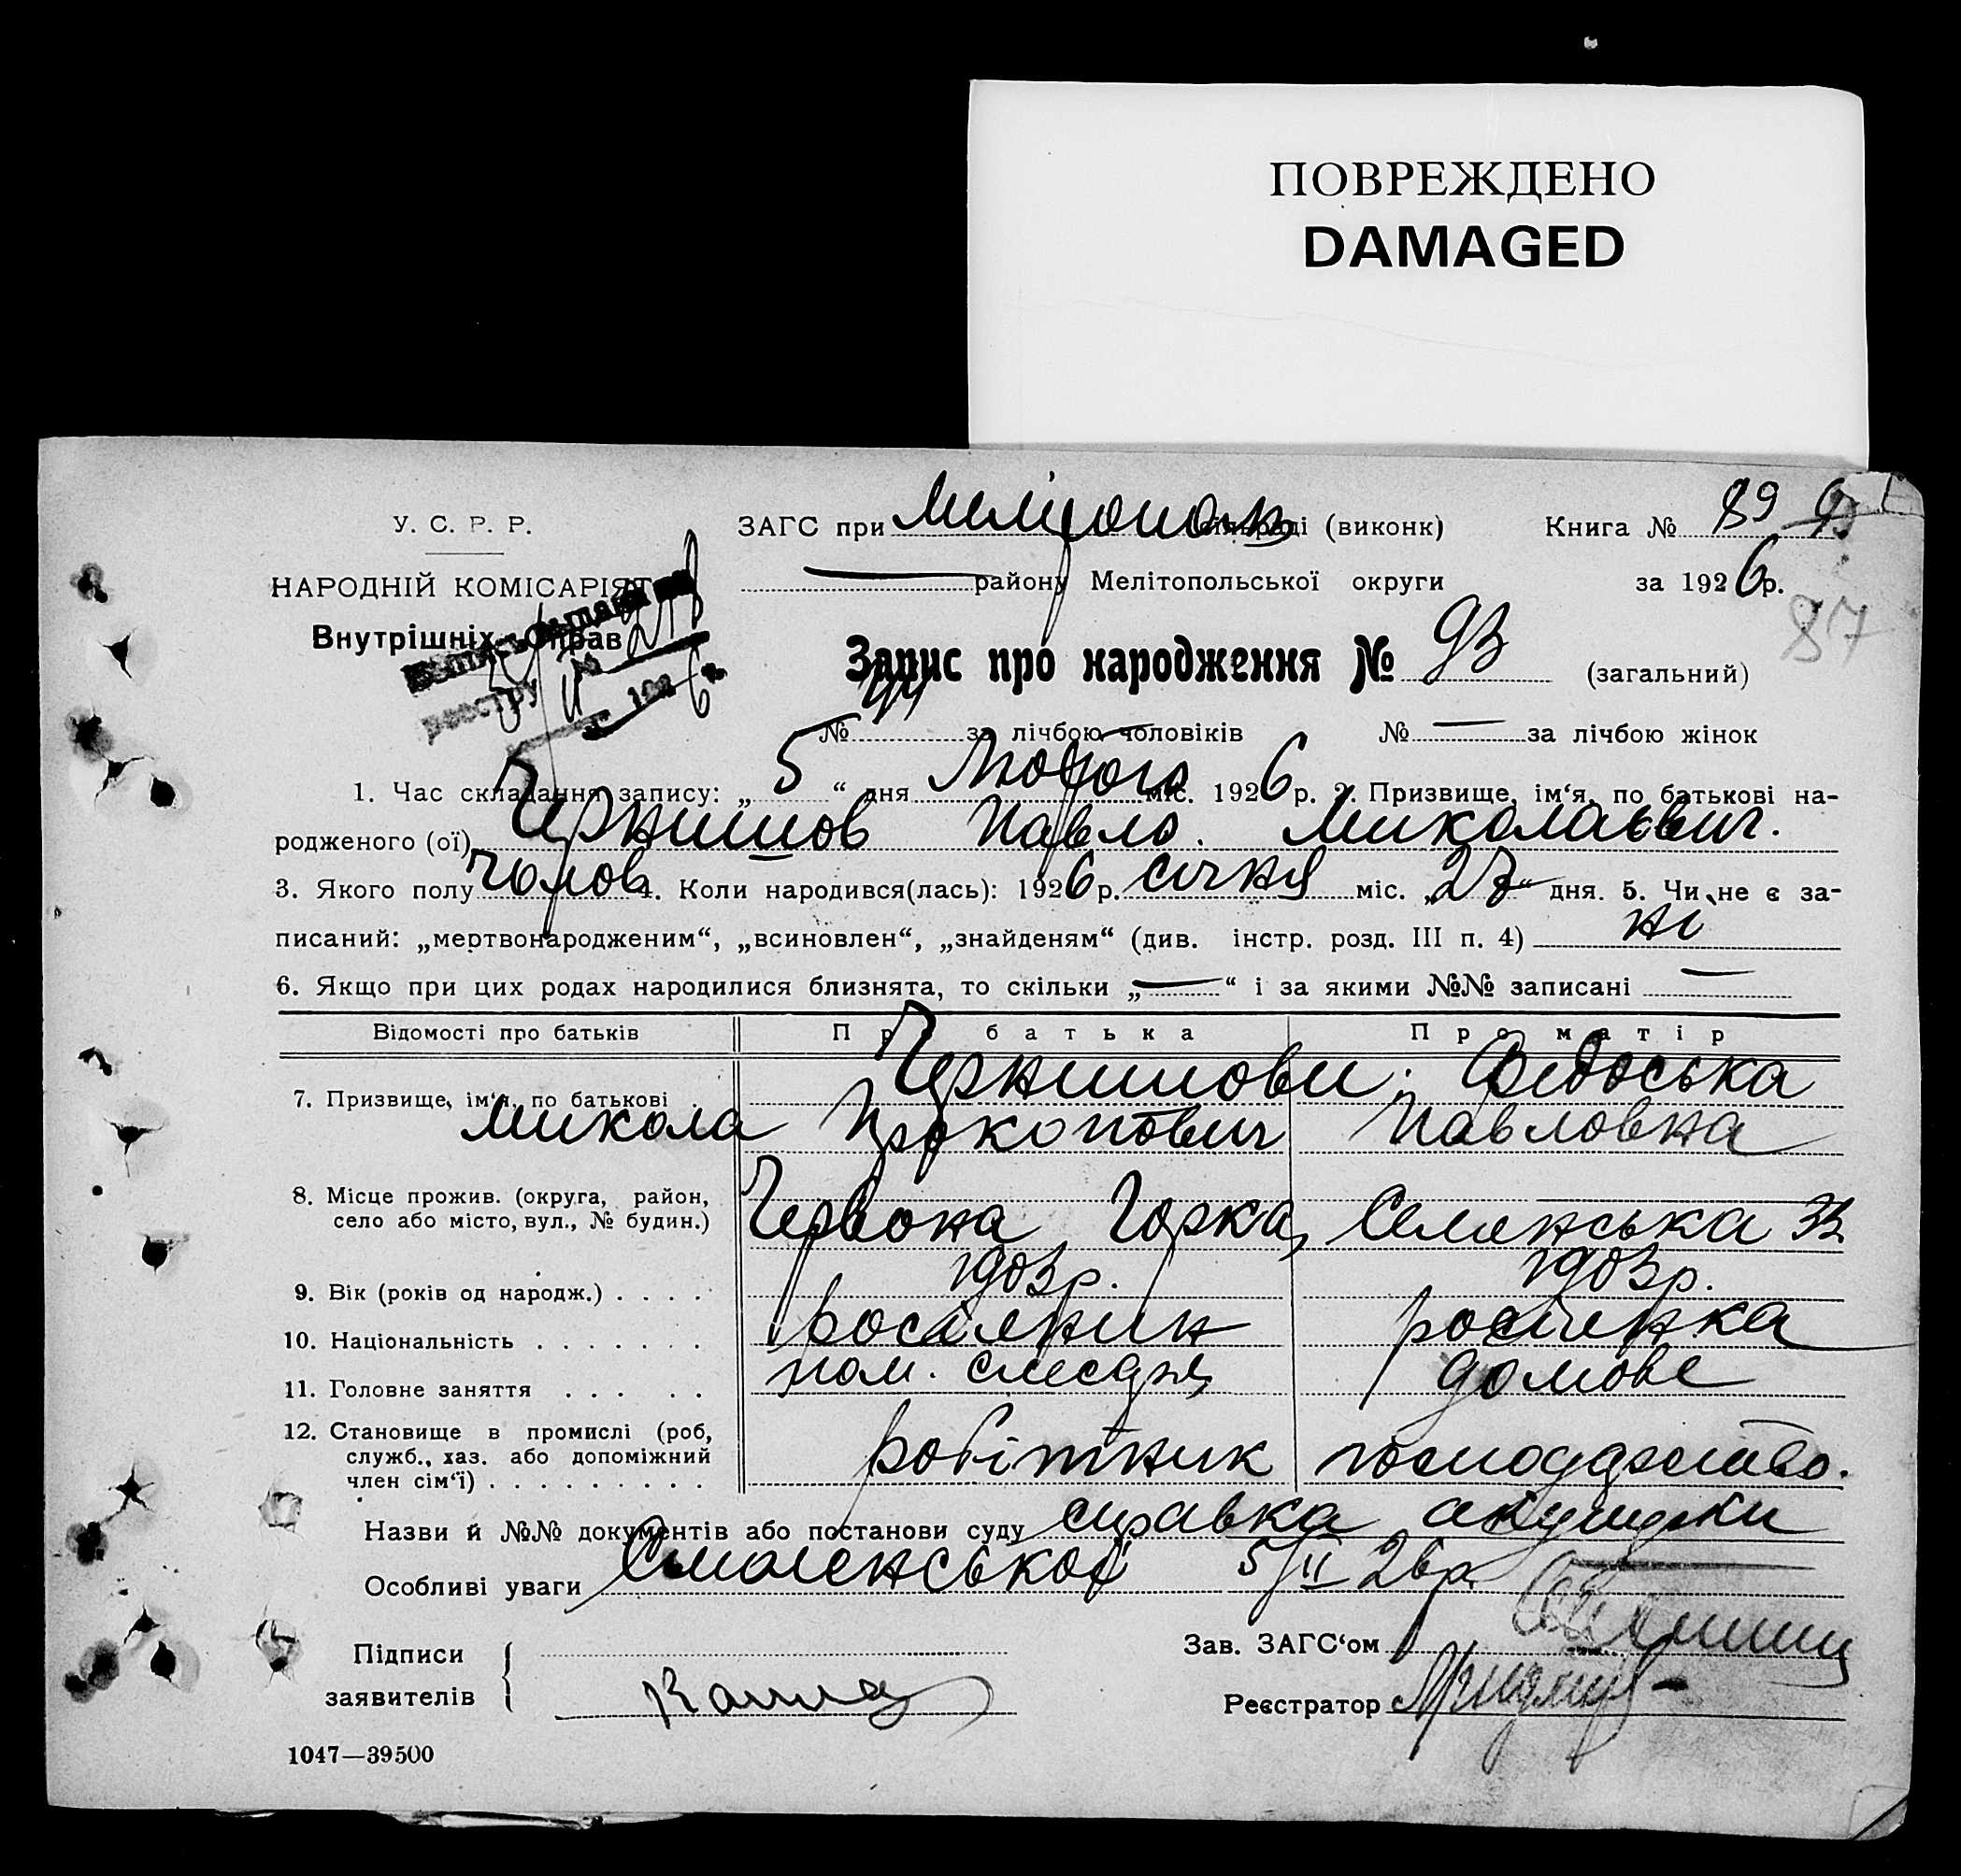 ПОВРЕЖДЕНО
DAMAGED
У. С. Р. Р.
НАРОДНІЙ КОМІСАРІЯТ
Внутрішніх Справ
ЗАГС при Мелітополь сільраді (виконк) Книга № 89
— району Мелітопольської округи за 1926 р.
87
Запис про народження № 93 (загальний)
№ за лічбою чоловіків № — за лічбою жінок
1. Час складання запису: „ 5 “ дня Лютого міс. 1926 р. 2. Призвище, ім‘я, по батькові на-
родженого (ої) Чернишов Павло Миколаєвич.
3. Якого полу чолов 4. Коли народився(лась): 1926 р. січня міс. „27“ дня. 5. Чи не є за-
писаний: „мертвонародженим“, „всиновлен“, „знайденям“ (див. інстр. розд. III п. 4) ні
6. Якщо при цих родах народилися близнята, то скільки „—“ і за якими №№ записані —
Відомості про батьків Про батька Про матір
Чернишови. Федоська
7. Призвище, ім‘я, по батькові .
Микола Прокопович Павловна
8. Місце прожив. (округа, район,
село або місто, вул., № будин.) Червона Горка, Селенська 33
9. Вік (років од народж.) . . . . 1903р. 1903р.
10. Національність . . . . . . . росіянин росіянка
11. Головне заняття . . . . . пом. слесаря домове
12. Становище в промислі (роб,
служб., хаз. або допоміжний
член сім‘ї) . . . . . . . . . робітник господарство.
Назви й №№ документів або постанови суду справка акушерки
Особливі уваги Смоленської 5/II 26р.
Підписи
заявителів
Зав. ЗАГС‘ом
Реєстратор
1047—39500